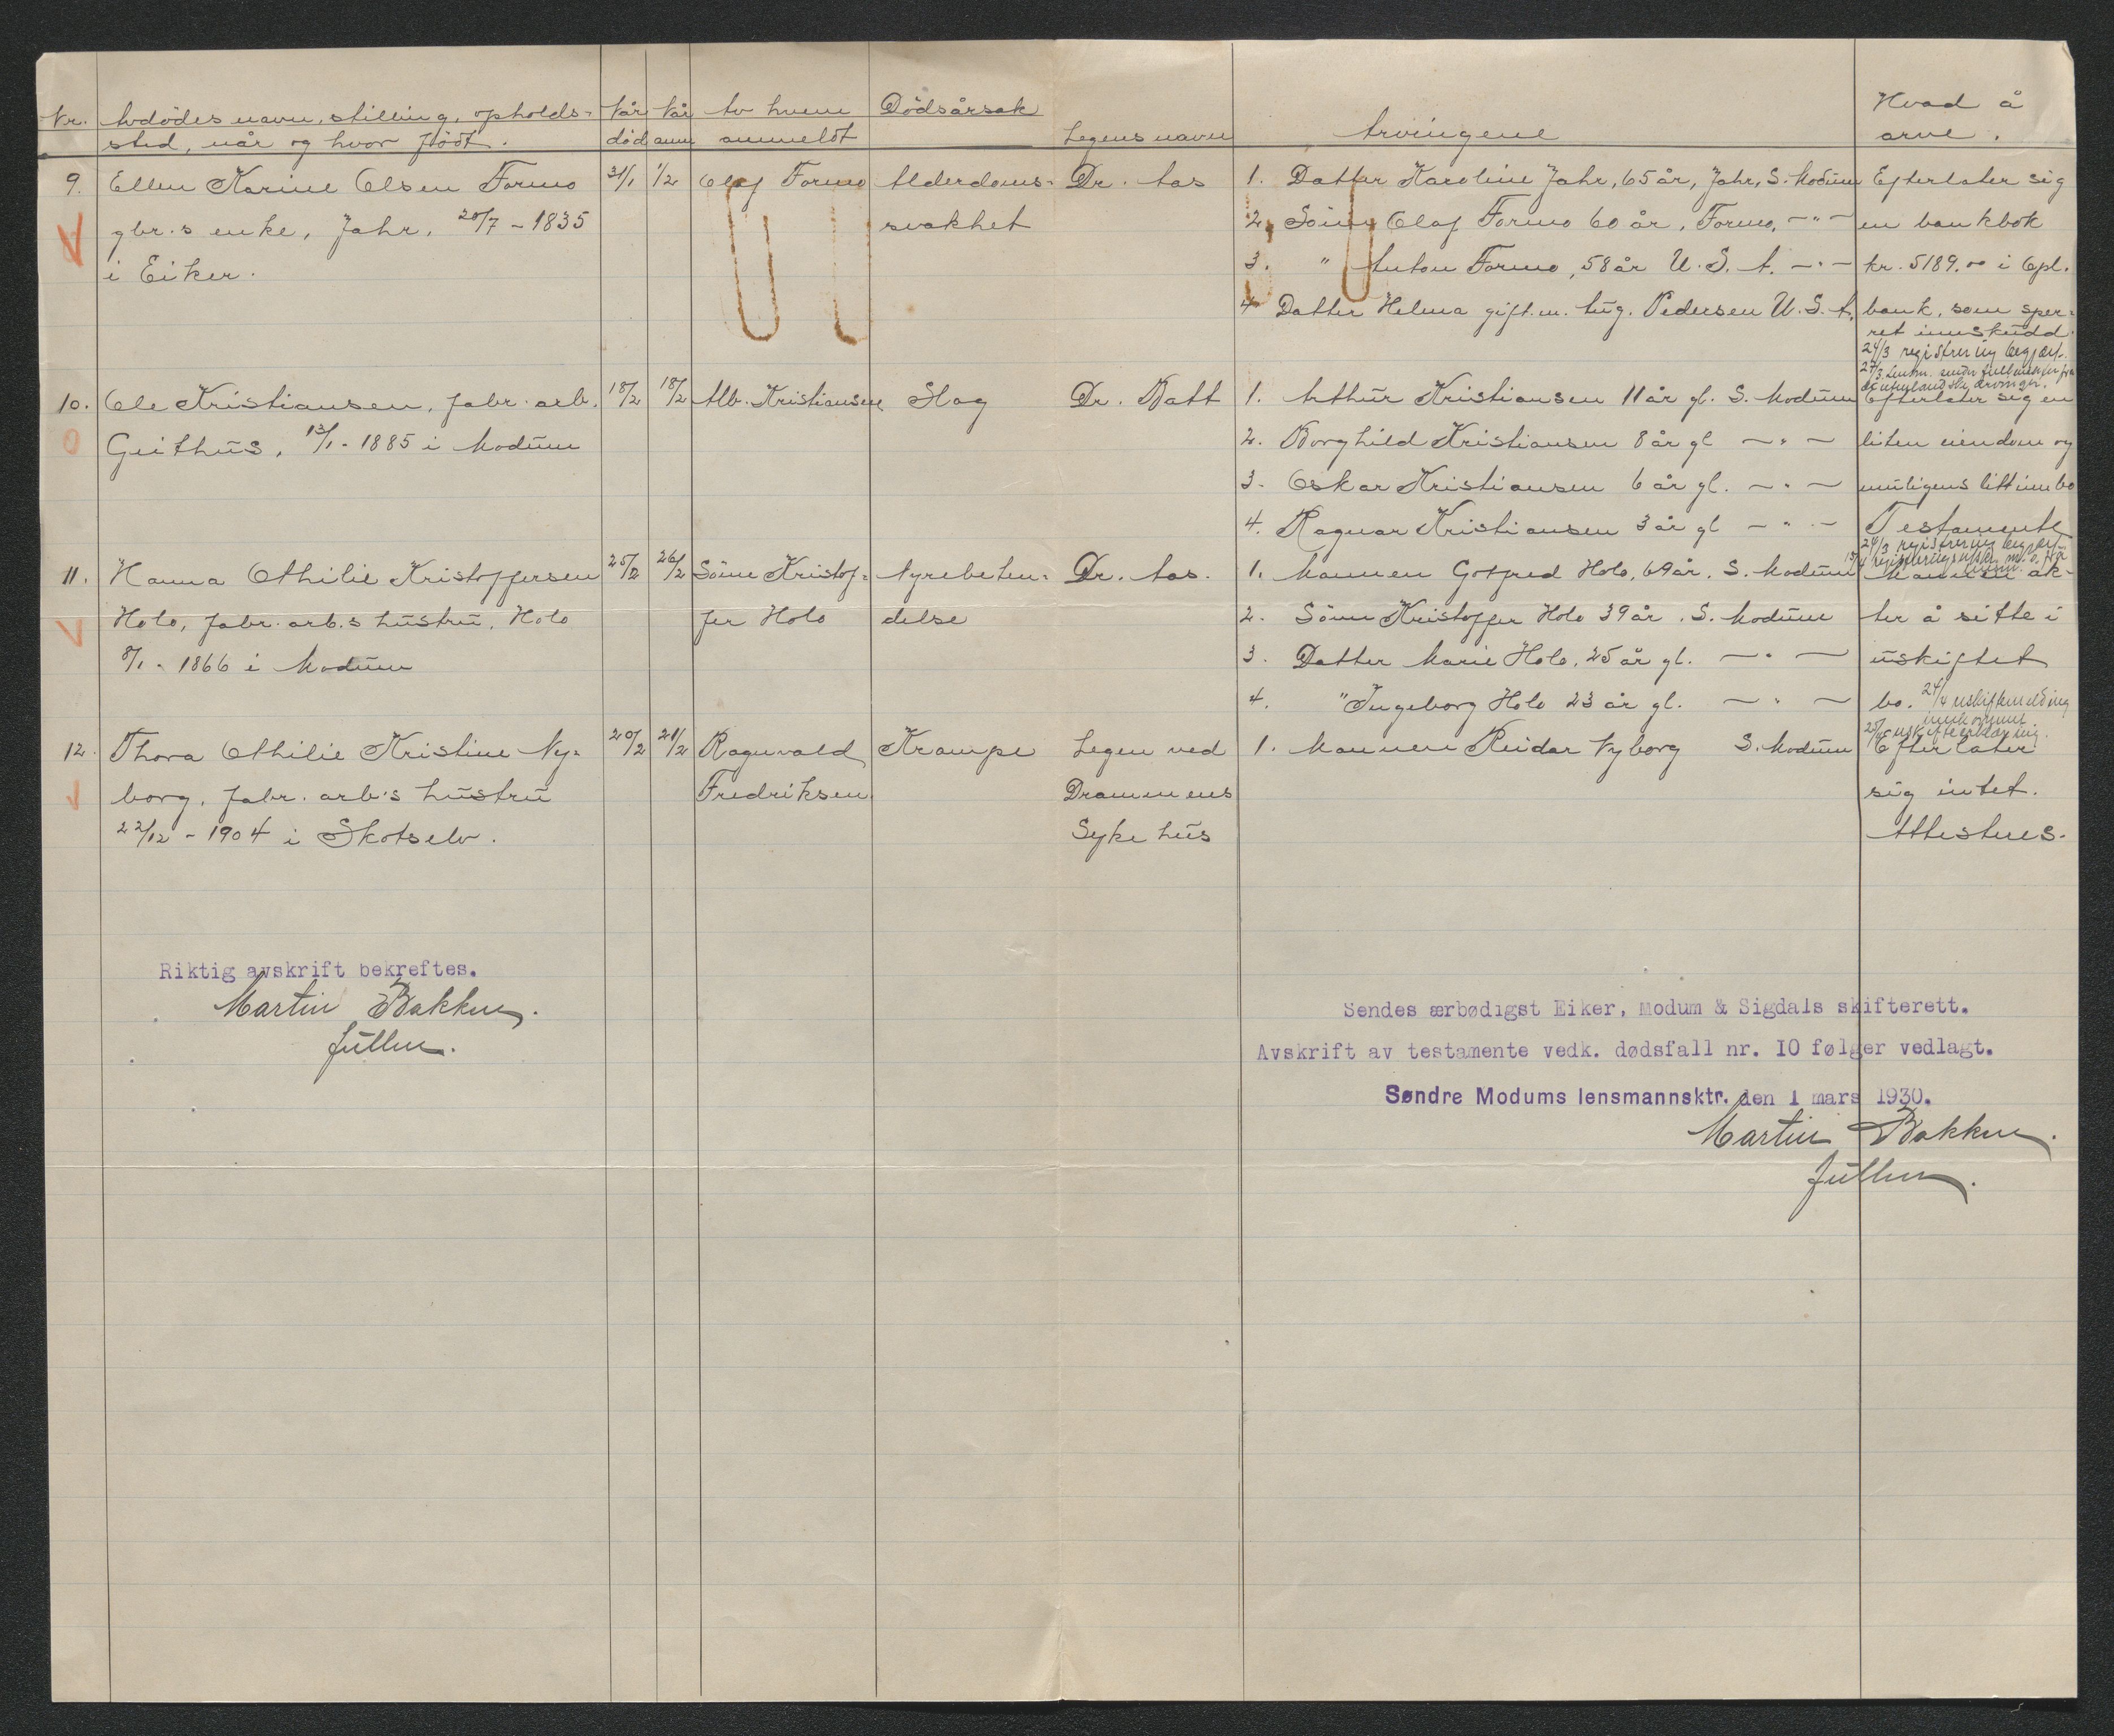 Nr.
Avdödes navn, stilling, opholds-
sted, når og hvor född.
Når
död
Når
anm
Av hvem
anmeldt
Dödsårsak
Legens navn
Arvingene
Hvad å
arve.
9.
Ellen Karine Olsen Formo
gbr.s enke, Jahr, 20/7 - 1835
i Eiker.
31/1
1/2
Olaf Formo
Alderdoms-
svakhet
Dr. Aas
1. Datter Karoline Jahr, 65 år, Jahr, S. Modum
2. Sönn Olaf Formo 60 år, Formo, - " -
3. " Anton Formo, 58 år U.S.A. - " -
4 Datter Helma gift.m. Aug. Pedersen U.S.A.
Efterlater sig
en bankbok
kr. 5189.00 i Opl.
bank, som sper-
ret innskudd.
24/3 registrering begjært.
10.
Ole Kristiansen, fabr. arb.
Geithus, 13/1 - 1885 i Modum
18/2
18/2
Alb. Kristiansen
Slag
Dr. Batt
1. Arthur Kristiansen 11 år gl. S. Modum
2. Borghild Kristiansen 8 år gl - " -
3. Oskar Kristiansen 6 år gl. - " -
4. Ragnar Kristiansen 3 år gl - " -
Efterlater sig en
liten eiendom og
muligens litt innbo
Testamente
24/3 registrering begjært.
11.
Hanna Othilie Kristoffersen
Holo, fabr. arb.s hustru, Holo
8/1 - 1866 i Modum
25/2
26/2
Sönn Kristof-
fer Holo
Nyrebeten-
delse
Dr. Aas.
1. Mannen Gotfred Holo, 69 år. S. Modum
2. Sönn Kristoffer Holo 39 år. S. Modum
3. Datter Marie Holo, 25 år gl. - " -
4. " Ingeborg Holo 23 år gl. - " -
Mannen ak-
ter å sitte i
uskiftet
bo. 24/4 uskiftemelding
innkommet
25/4 uskifteerklæring.
12.
Thora Othilie Kristine Ny-
borg, fabr. arb's hustru
22/12 - 1904 i Skotselv.
20/2
21/2
Ragnvald
Fredriksen
Krampe
Legen ved
Drammens
Sykehus
1. Mannen Reidar Nyborg S. Modum
Efterlater
sig intet.
Attesteres.
Riktig avskrift bekreftes.
Martin Bakken.
fullm.
Sendes ærbødigst Eiker, Modum & Sigdals skifterett.
Avskrift av testamente vedk. dødsfall nr. 10 følger vedlagt.
Søndre Modums lensmannsktr. den 1 mars 1930.
Martin Bakken.
fullm.